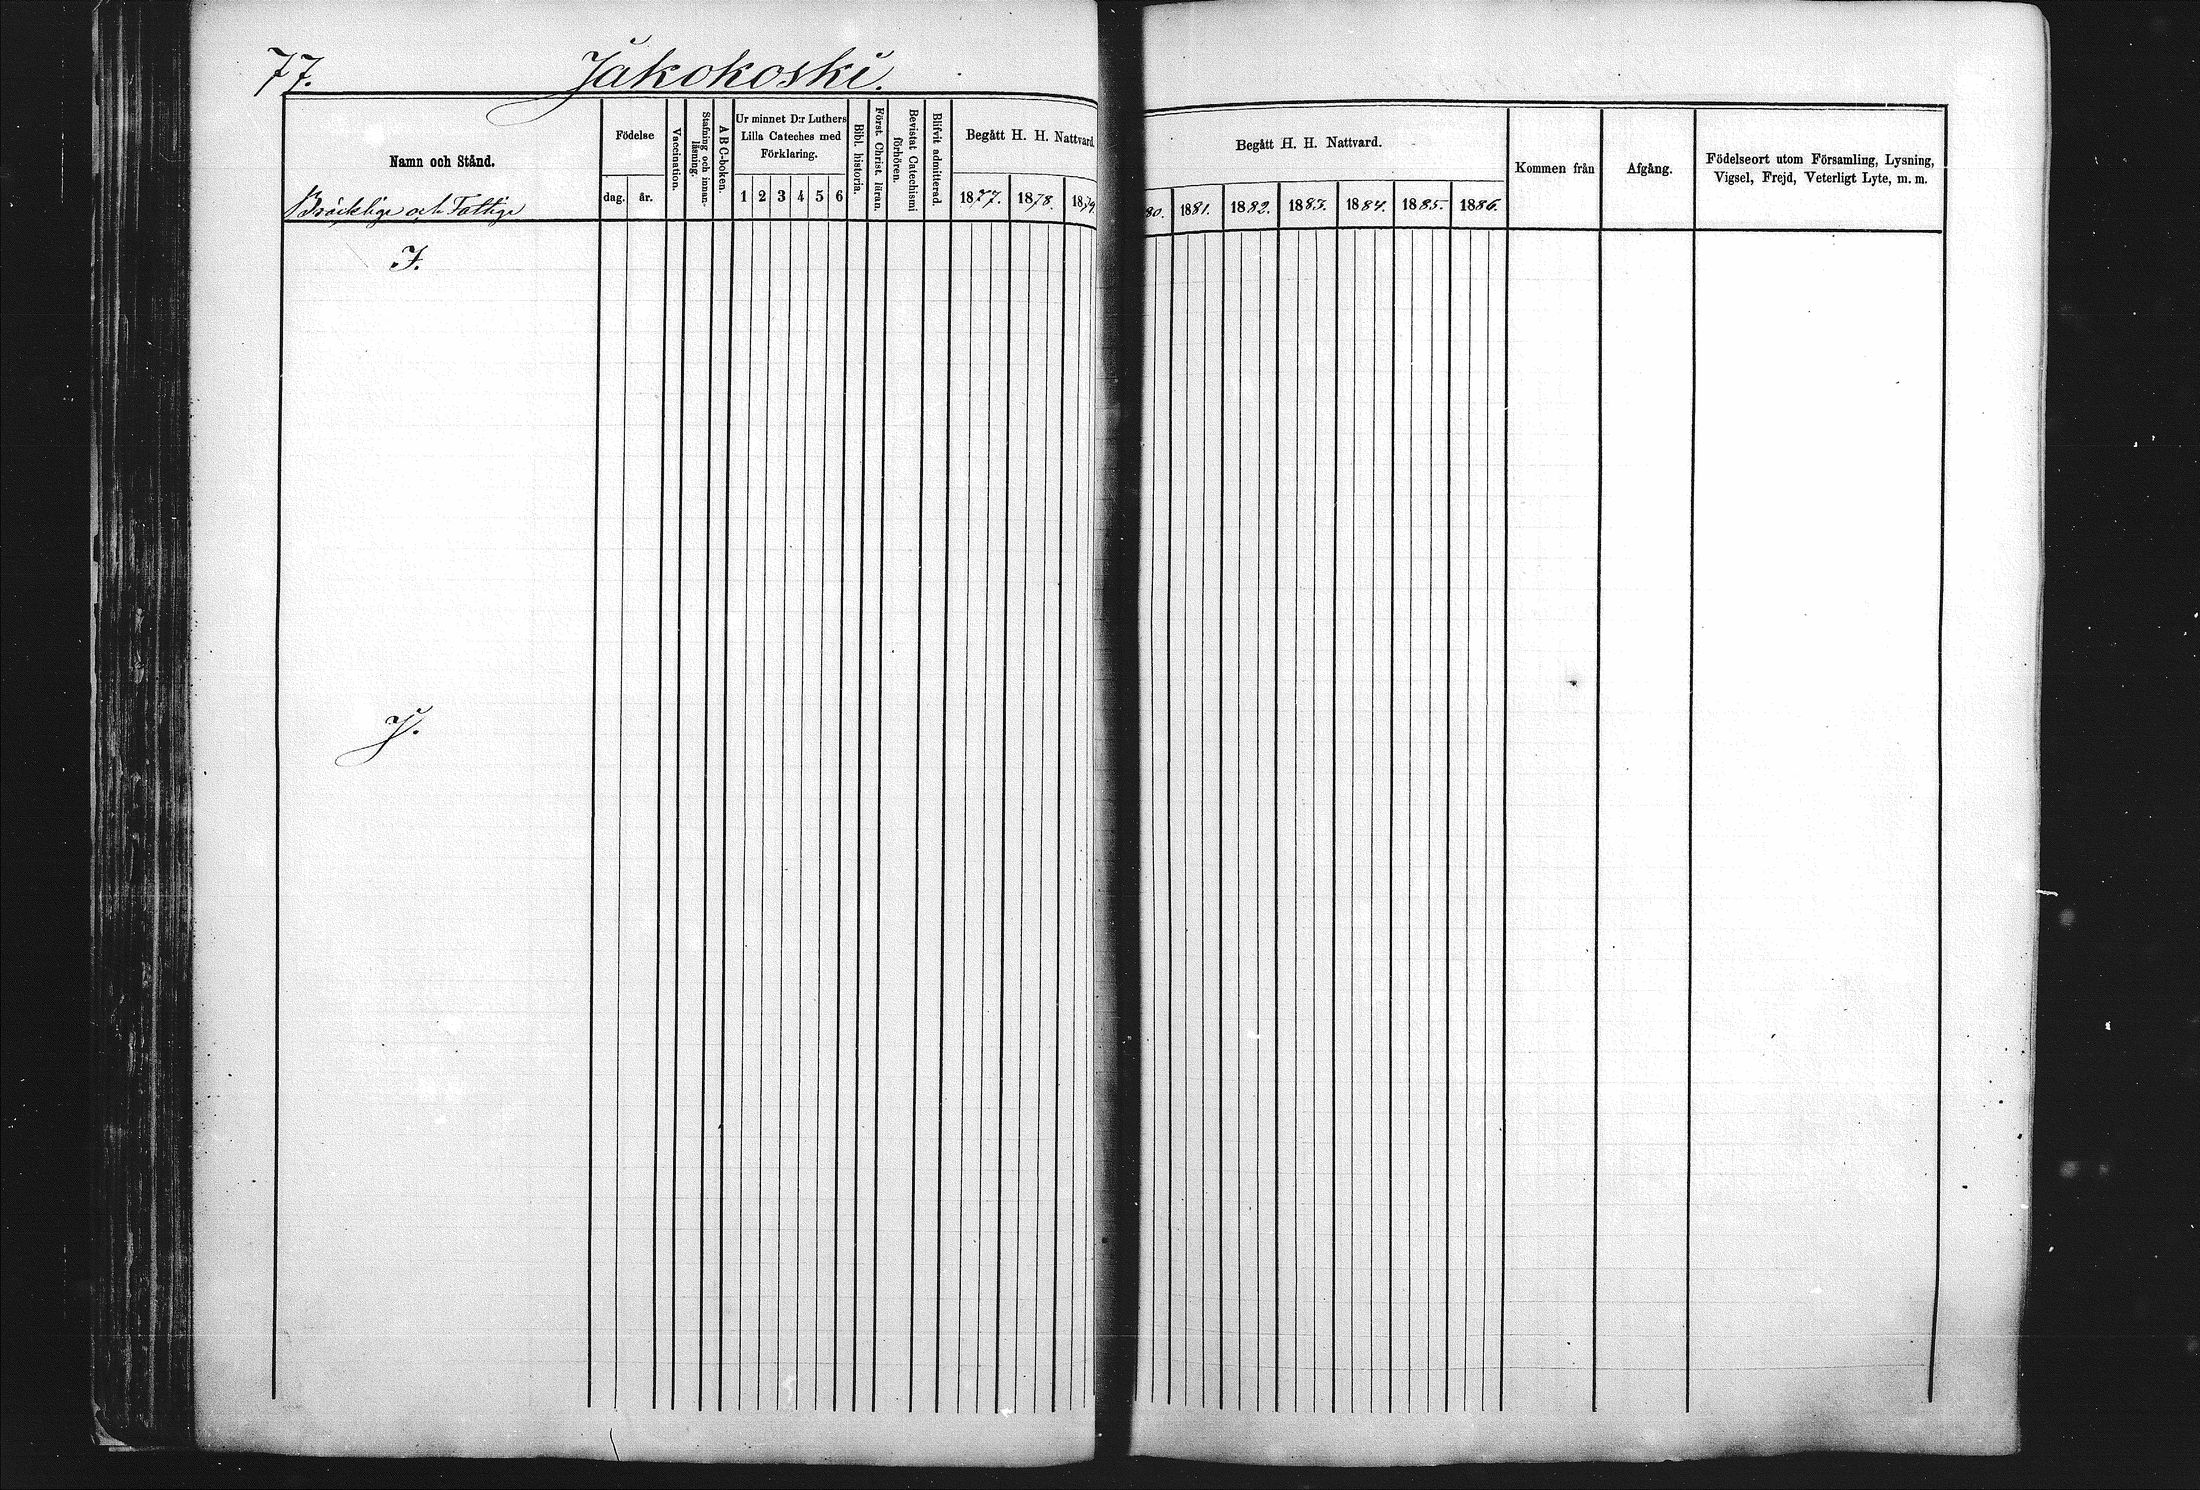 77. Jakokoski.
Namn och Stånd.
Bräcklige och Fattige
Födelse
dag. år.
Vaccination.
Stafning och innan-
läsning.
A B C-boken.
Ur minnet D:r Luthers
Lilla Cateches med
Förklaring.
1 2 3 4 5 6
Bibl. historia.
Först. Christ. läran.
Bevistat Catechismi
förhören.
Blifvit admitterad.
Begått H. H. Nattvard.
1877. 1878. 1879.
Begått H. H. Nattvard.
80. 1881. 1882. 1883. 1884. 1885. 1886.
Kommen från
Afgång.
Födelseort utom Församling, Lysning,
Vigsel, Frejd, Veterligt Lyte, m. m.
I.
J.